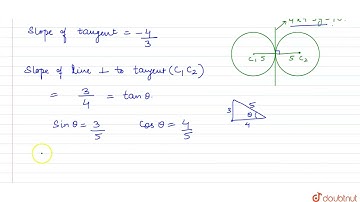 Slope of tangent = -4/3
Slope of line ⊥ to tangent (C1 C2)
= 3/4 = tanθ.
Sinθ = 3/5 Cosθ = 4/5
C1 5 5 C2
3 5 θ
4
doubtnut